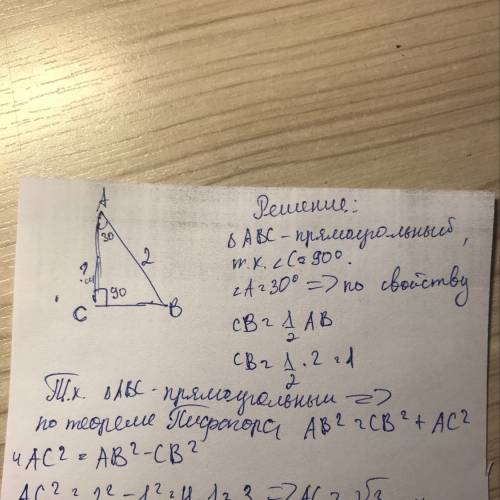 A
30
2
?
см
90
C
B
Решение:
△ABC - прямоугольный,
т.к. ∠C = 90°.
∠A = 30° => по свойству
CB = 1/2 AB
CB = 1/2 · 2 = 1
Т.к. △ABC - прямоугольный =>
по теореме Пифагора AB² = CB² + AC²
и AC² = AB² - CB²
AC² = 2² - 1² = 4 - 1 = 3 => AC = √3